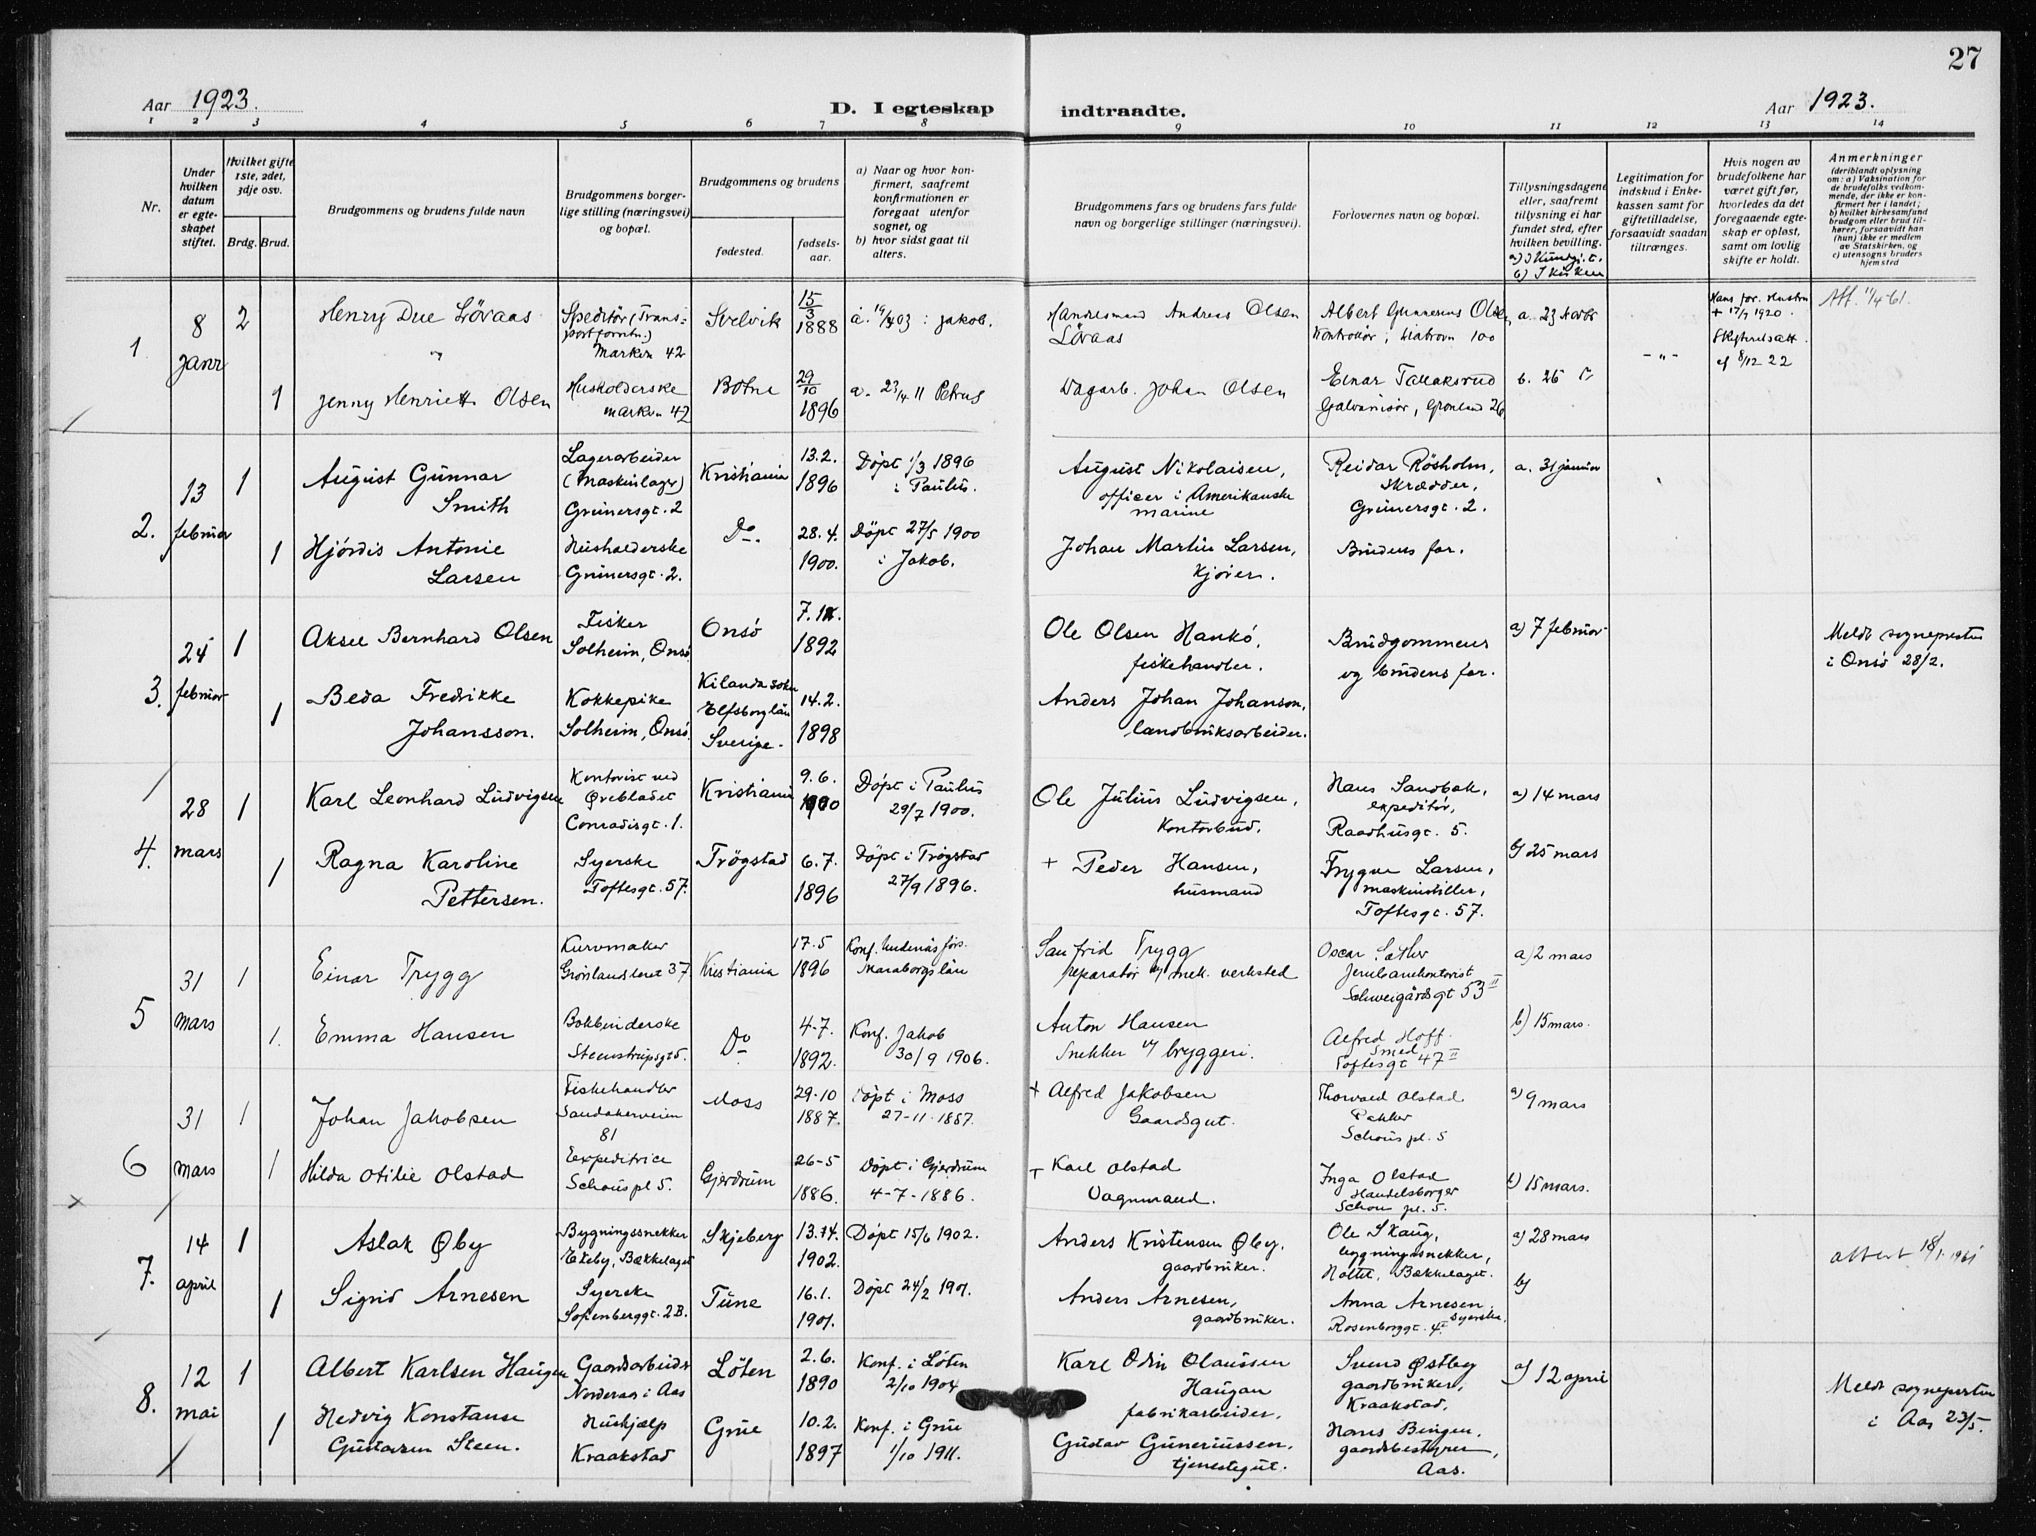 27
Aar 1923.
D. I egteskap indtraadte.
Aar 1923.
1 2 3 4 5 6 7 8 9 10 11 12 13 14
Nr.
Under hvilken datum er egteskapet stiftet.
Hvilket gifte 1ste, 2det, 3dje osv.
Brdg. Brud.
Brudgommens og brudens fulde navn
Brudgommens borgerlige stilling (næringsvei) og bopæl.
Brudgommens og brudens
fødested.
fødselsaar.
a) Naar og hvor konfirmert, saafremt konfirmationen er foregaat utenfor sognet, og
b) hvor sidst gaat til alters.
Brudgommens fars og brudens fars fulde navn og borgerlige stillinger (næringsvei).
Forlovernes navn og bopæl.
Tillysningsdagene eller, saafremt tillysning ei har fundet sted, efter hvilken bevilling.
Legitimation for indskud i Enkekassen samt for giftetilladelse, forsaavidt saadan tiltrænges.
Hvis nogen av brudefolkene har været gift før, hvorledes da det foregaaende egteskap er opløst, samt om lovlig skifte er holdt.
Anmerkninger
(deriblandt oplysning om: a) Vaksination for de brudefolks vedkommende, der ikke er konfirmert her i landet; b) hvilket kirkesamfund brudgom eller brud tilhører, forsaavidt han (hun) ikke er medlem av Statskirken, og c) utensogns bruders hjemsted
1 8 janr 2 Henry Due Lövaas
Speditör (Transportforretn.)
Marken 42
Svelvik 15/3 1888
: Jakob.
Andreas Olsen
Lövaas
Albert Gunnerius Olsen
100
a. 23
+ 17/7 1920.
8/12 22
Att. 11/4-61.
1 Jenny Henriett Olsen
Husholderske
Marken 42
Botne 29/10 1896
a. 23/4 11 Petrus
Dagarb. Johan Olsen
Einar Tallaksrud
Galvanisör, Grönland 26
b. 26
- " -
2. 13 februar 1 August Gunnar Smith
Lagerarbeider
(Maskinlager)
Grünersgt. 2
Kristiania 13.2. 1896
Döpt 1/3 1896
i Paulus.
August Nikolaisen,
officer i Amerikanske
marine
Reidar Rösholm,
skrædder,
Grünersgt. 2.
a. 31 januar
1 Hjördis Antonie Larsen
Husholderske
Grünersgt. 2.
Do. 28.4. 1900.
Döpt 27/5 1900
i Jakob.
Johan Martin Larsen,
kjörer.
Brudens far.
3. 24 februar 1 Aksel Bernhard Olsen
Fisker
Solheim, Onsö
Onsö 1892
Ole Olsen Hankö,
fiskehandler.
Brudgommens
og brudens far.
a) 7 februar
Meldt sognepresten
i Onsö 28/2.
1 Beda Fredrikke Johansson.
Kokkepike
Solheim, Onsö
Kilanda sokn
Elfsborglän
Sverige.
14.2. 1898
Anders Johan Johanson,
landbruksarbeider.
4. 28 mars 1 Karl Leonhard Ludvigsen
Kontorist ved
Ørebladet
Conradisgt. 1.
Kristiania 9.6. 1900
Döpt i Paulus
29/7 1900.
Ole Julius Ludvigsen,
Kontorbud.
Hans Sandbak,
expeditör,
Raadhusgt. 5.
a) 14 mars
1 Ragna Karoline Pettersen.
Syerske
Toftesgt. 57.
Trögstad 6.7. 1896
Döpt i Trögstad
27/9 1896.
+ Peder Hansen,
husmand
Trygve Larsen,
maskinstiller,
Toftesgt. 57.
b) 25 mars
5 31 mars 1 Einar Trygg
Kurvmaker
Grönlandsleret 37
Kristiania 17-5 1896
Konf. Undenäs förs.
Skaraborgs län
Sanfrid Trygg
reparatör v/ mek. verksted
Oscar Sæther
Jernbanekontorist
Schweigårdsgt 53 II
a) 2 mars
1. Emma Hansen
Bokbinderske
Steenstrupsgt 5.
Do 4-7. 1892.
Konf. Jakob
30/9 1906.
Anton Hansen
Snekker v/ bryggeri.
Alfred Hoff.
Smed
Toftesgt 47 II
b) 15 mars.
6 31 mars 1 Johan Jakobsen
Fiskehandler
Sandakerveien
81
Moss 29-10 1887.
Döpt i Moss
27-11-1887.
+ Alfred Jakobsen
Gaardsgut.
Thorvald Olstad
Pakker
Schous pl. 5
a) 9 mars
1 Hilda Otilie Olstad
Expeditrice
Schous pl 5.
Gjerdrum 26-5 1886.
Döpt i Gjerdrum
4-7-1886.
+ Karl Olstad
Vognmand.
Inga Olstad
Handelsborger
Schou pl. 5.
b) 15 mars.
7. 14 april 1 Aslak Øby
Bygningssnekker
Ekeby, Bækkelaget
Skjeberg 1902.
Döpt 15/6 1902.
Anders Kristensen Øby,
gaardbruker.
Ole Skaug,
bygningssnekker,
Holtet, Bækkelaget.
a) 28 mars
attest 18/1. 1961
1 Sigrid Arnesen
Syerske
Sofienberggt. 2B.
Tune 16.1. 1901.
Döpt 24/2 1901.
Anders Arnesen,
gaardbruker.
Anna Arnesen, syerske
Rosenborggt. 4 I
b)
8. 12 mai 1 Albert Karlsen Haugen
Gaardsarbeider
Norderaas i Aas
Löten 2.6. 1890
Konf. i Löten
2/10 1904
Karl Odin Olaussen
Haugan
fabrikarbeider.
Svend Østby
gaardbruker,
Kraakstad.
a) 12 april
Meldt sognepresten
i Aas 23/5.
1 Hedvig Konstanse Gustavsen Steen.
Hushjælp
Kraakstad
Grue 10.2. 1897
Konf. i Grue
1/10 1911.
Gustav Guneriussen.
tjenestegut.
Hans Bingen,
gaardsbestyrer,
Aas.